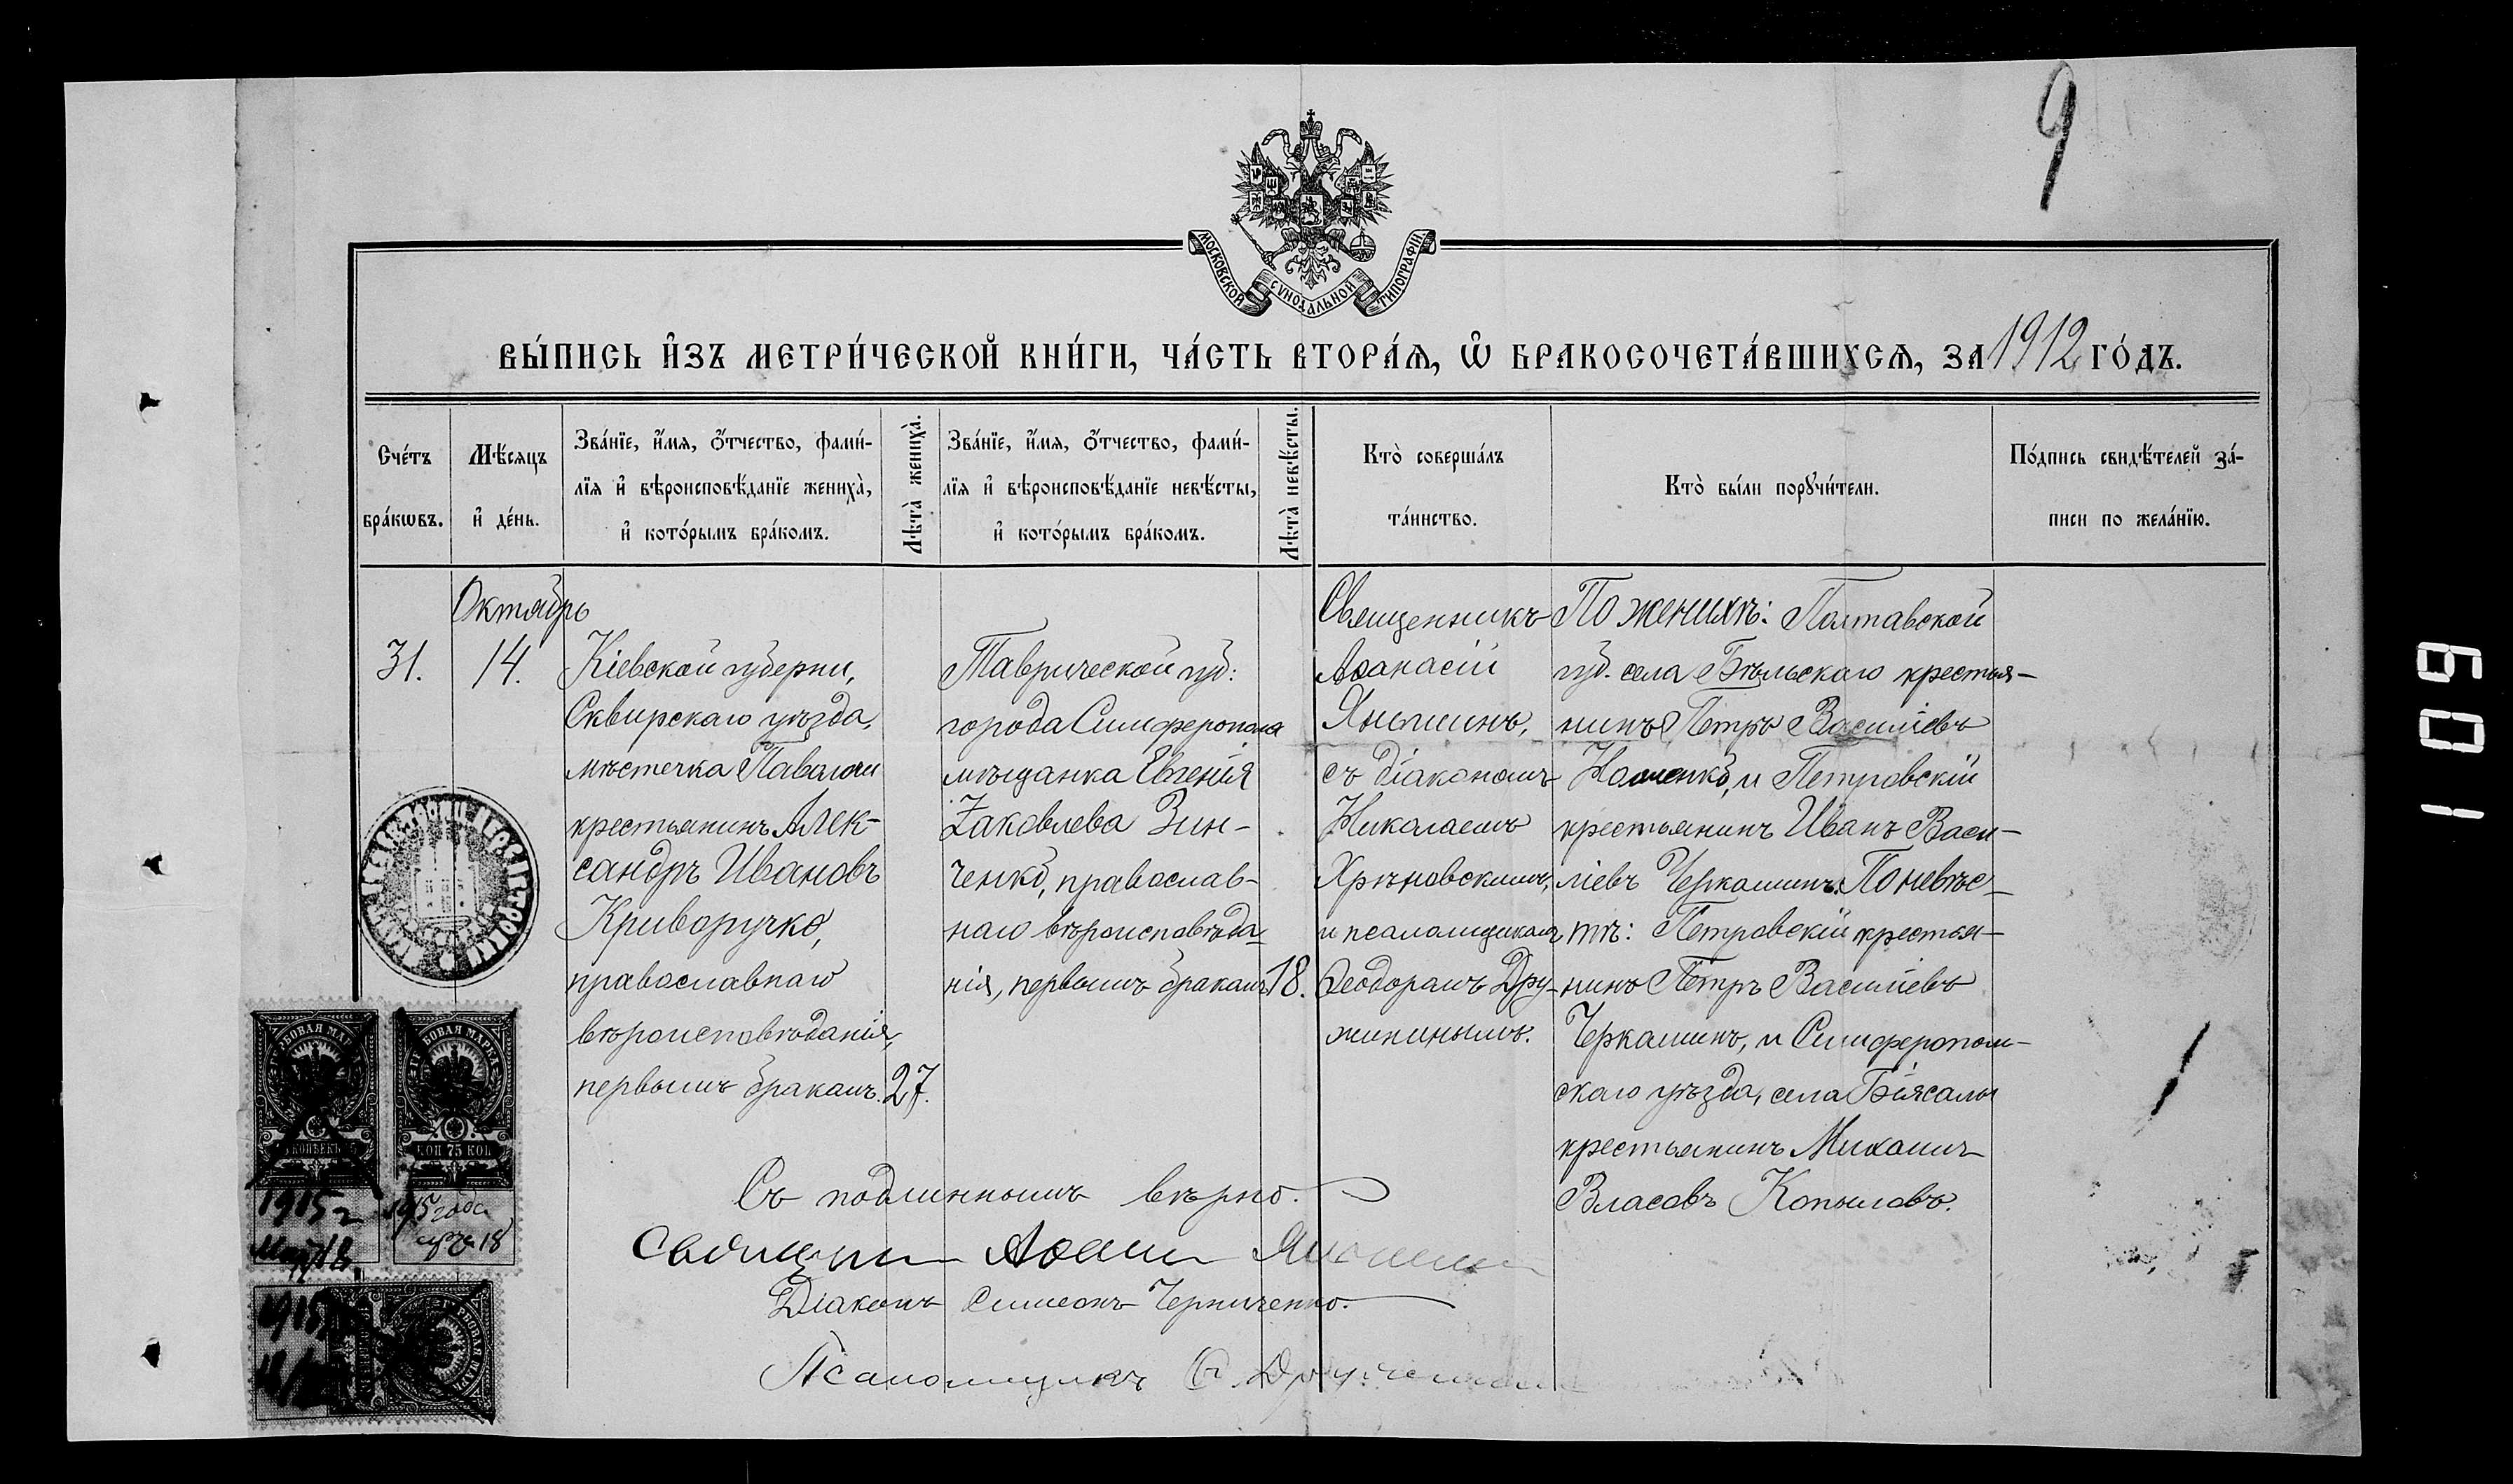 9
МОСКОВСКОЙ СѴНОДАЛЬНОЙ ТИПОГРАФІИ.
ВЫ́ПИСЬ И҆ЗЪ МЕТРИ́ЧЕСКОЙ КНИ́ГИ, ЧА́СТЬ ВТОРА́Ѧ, Ѽ БРАКОСОЧЕТА́ВШИХСѦ, ЗА 1912 ГО́ДЪ.
Сче́тъ
бра́кѡвъ.
Мѣ́сяцъ
и҆ де́нь.
Зва́нїе, и҆́мя, ѻ҆́тчество, фами́-
лїя и҆ вѣроисповѣ́данїе жениха̀,
и҆ кото́рымъ бра́комъ.
Лѣта̀ жениха̀.
Зва́нїе, и҆́мя, ѻ҆́тчество, фами́-
лїя и҆ вѣроисповѣ́данїе невѣ́сты,
и҆ кото́рымъ бра́комъ.
Лѣта̀ невѣ́сты.
Кто̀ соверша́лъ
та́инство.
Кто̀ бы́ли порꙋчи́тели.
По́дпись свидѣ́телей за́-
писи по жела́нїю.
Октябрь
31.
14.
Кіевской губерни,
Сквирскаго уѣзда,
мѣстечка Паволочи
крестьянинъ Алек-
сандръ Ивановъ
Криворучко,
православнаго
вѣроисповѣданія,
первымъ бракомъ.
27.
Таврической губ:
города Симферополя
мѣщанка Евгенія
Яковлева Зин-
ченко, православ-
наго вѣроисповѣда-
нія, первымъ бракомъ
18.
Священникъ
Аѳанасій
Яньшинъ,
съ діакономъ
Николаемъ
Хрѣновскимъ,
и псаломщикомъ
Ѳеодоромъ Дру-
жининымъ.
По женихѣ: Полтавской
губ. села Бѣльскаго крестья-
нинъ Петръ Василіевъ
и Петровскій
крестьянинъ Иванъ Васи-
ліевъ Черкашинъ. По невѣс-
тѣ: Петровскій крестья-
нинъ Петръ Василіевъ
Черкашинъ, и Симферополь-
скаго уѣзда, села Біясалы
крестьянинъ Михаилъ
Власовъ Копыловъ.
Съ подлиннымъ вѣрно.
Священникъ Аѳанасій Яньшинъ
Діаконъ Симеонъ Черниченко.
Псаломщикъ Ѳ. Дружининъ
ГЕРБОВАЯ МАРКА
1915 г.
мая 18
ГЕРБОВАЯ МАРКА
75 КОП
1915 года
18
ГЕРБОВАЯ МАРКА
1915
109